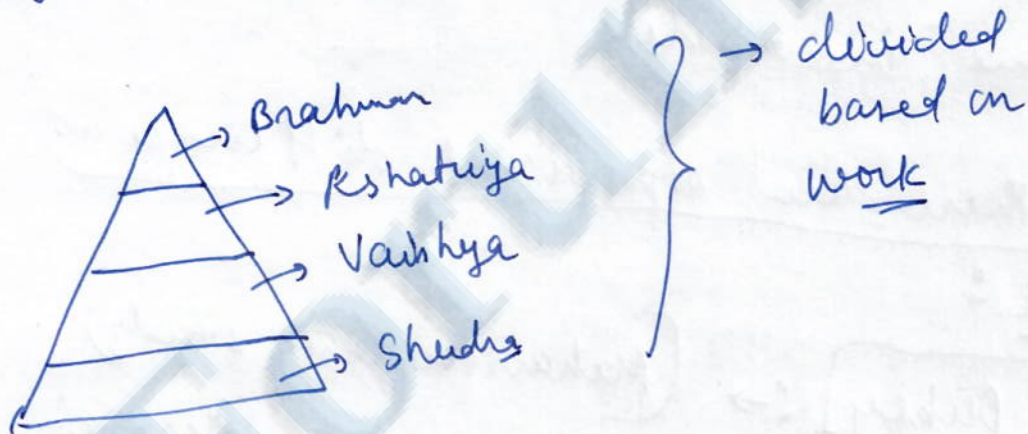 Brahman
Kshatriya
Vaishya
Shudra
→ divided
based on
work
Forum